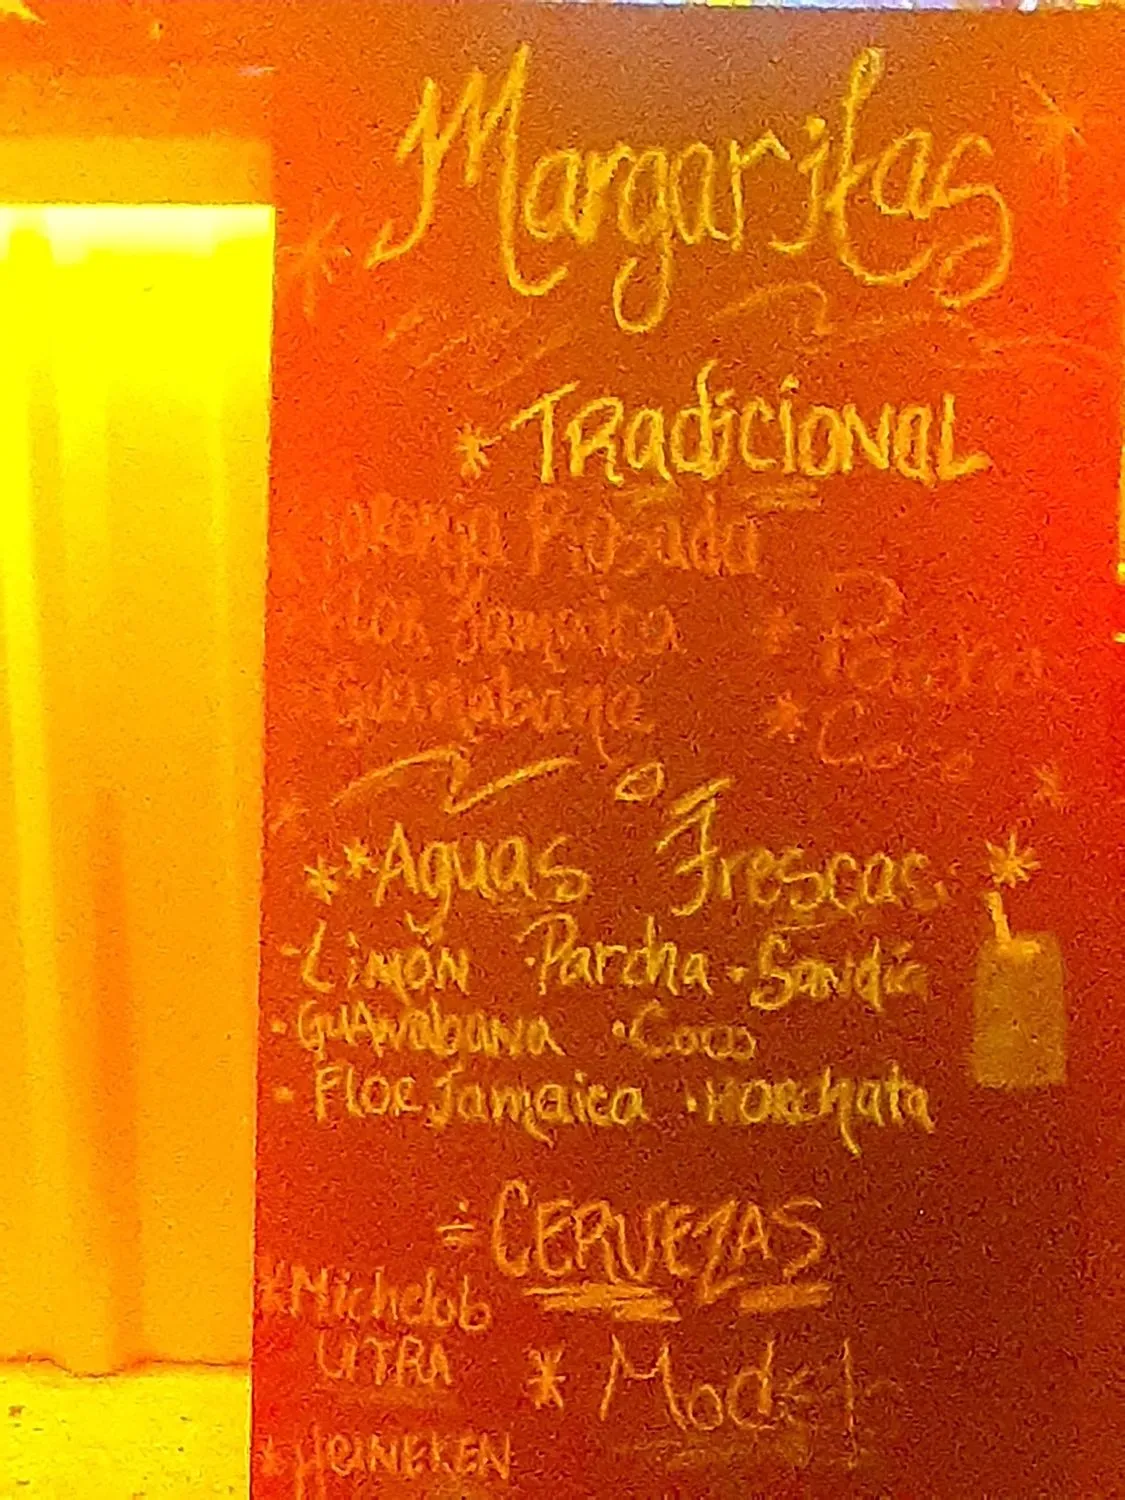 Margaritas
* Tradicional
Rosada
Flor Jamaica
* Parcha
Guanabana
* Coco
**Aguas Frescas *
- Limón · Parcha · Sandia
· GUANabana · Coco
- Flor Jamaica · HORchata
= CERVEZAS
* Michelob
ULTRA
* Model
* HEINEKEN